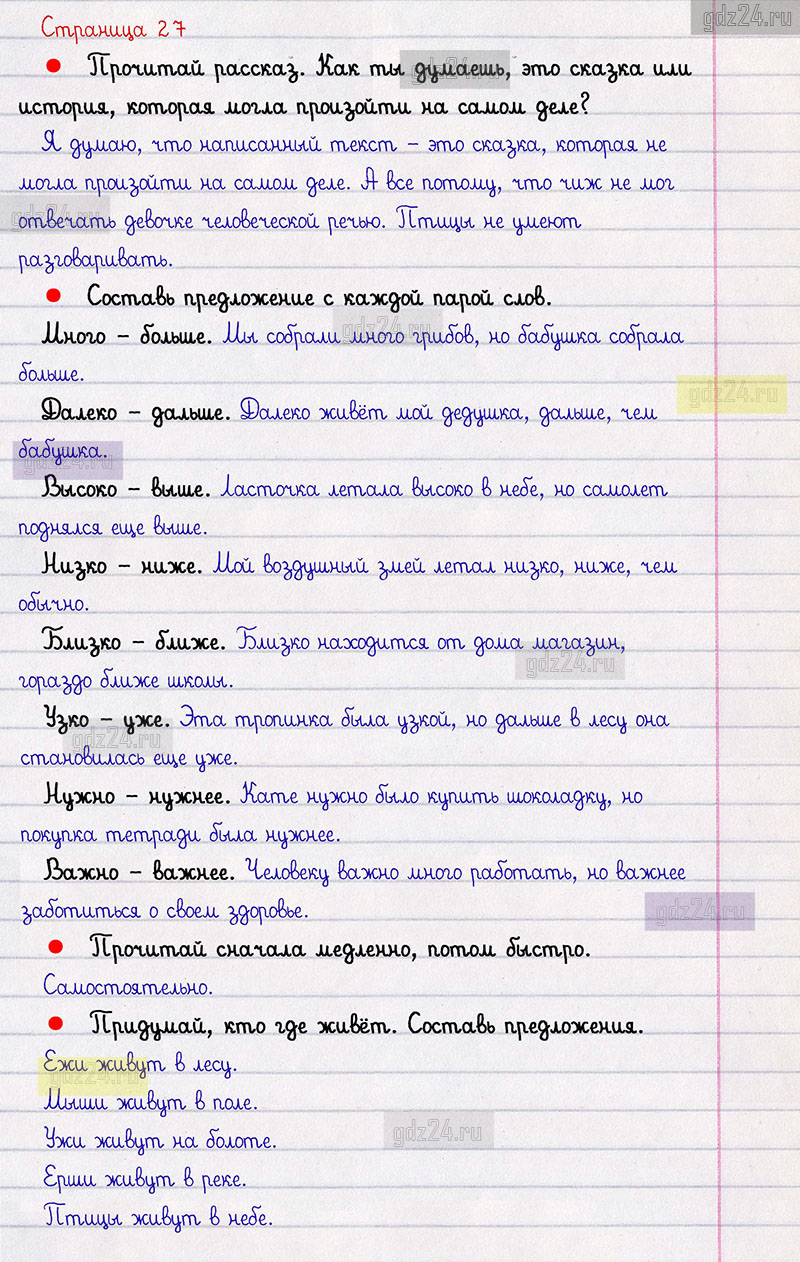 gdz24.ru
Страница 27
● Прочитай рассказ. Как ты думаешь, это сказка или
gdz24.ru
история, которая могла произойти на самом деле?
Я думаю, что написанный текст – это сказка, которая не
могла произойти на самом деле. А все потому, что чиж не мог
gdz24.ru
отвечать девочке человеческой речью. Птицы не умеют
разговаривать.
● Составь предложение с каждой парой слов.
gdz24.ru
Много – больше. Мы собрали много грибов, но бабушка собрала
больше.
gdz24.ru
Далеко – дальше. Далеко живёт мой дедушка, дальше, чем
бабушка.
gdz24.ru
Высоко – выше. Ласточка летала высоко в небе, но самолет
поднялся еще выше.
Низко – ниже. Мой воздушный змей летал низко, ниже, чем
обычно.
Близко – ближе. Близко находится от дома магазин,
gdz24.ru
гораздо ближе школы.
Узко – уже. Эта тропинка была узкой, но дальше в лесу она
gdz24.ru
становилась еще уже.
Нужно – нужнее. Кате нужно было купить шоколадку, но
покупка тетради была нужнее.
Важно – важнее. Человеку важно много работать, но важнее
заботиться о своем здоровье.
gdz24.ru
● Прочитай сначала медленно, потом быстро.
Самостоятельно.
● Придумай, кто где живёт. Составь предложения.
Ежи живут в лесу.
gdz24.ru
Мыши живут в поле.
Ужи живут на болоте.
gdz24.ru
Ерши живут в реке.
Птицы живут в небе.